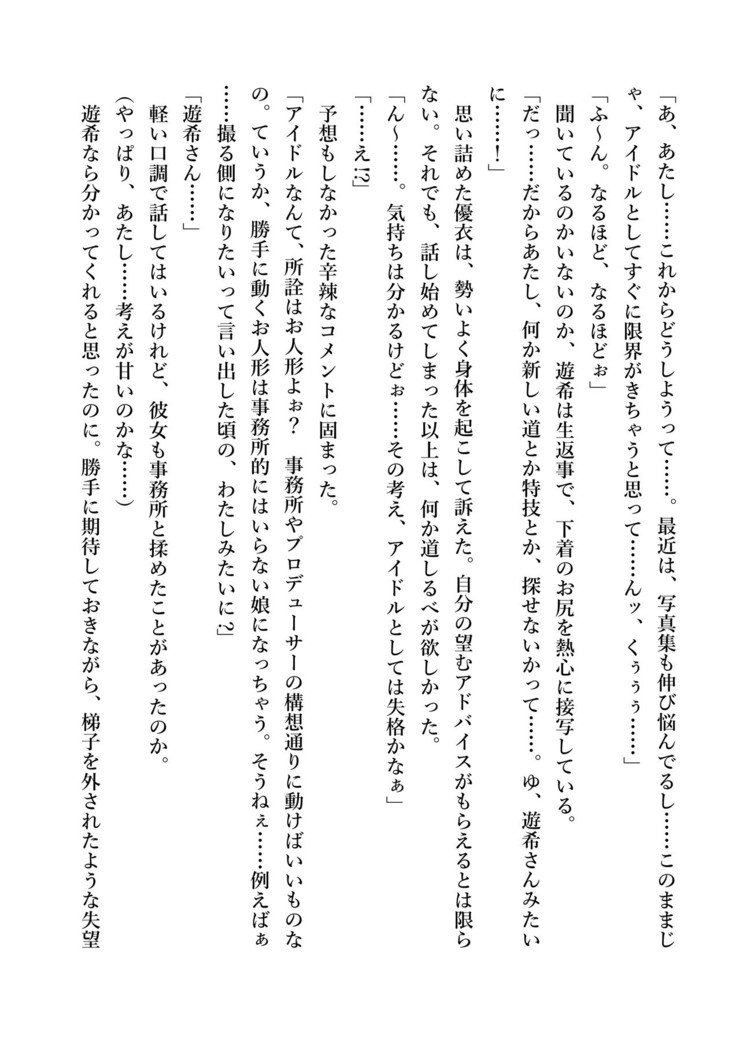 「あ、あたし……これからどうしようって……。最近は、写真集も伸び悩んでるし……このままじ
ゃ、アイドルとしてすぐに限界がきちゃうと思って……んッ、くぅぅぅ……」
「ふ～ん。なるほど、なるほどぉ」
聞いているのかいないのか、遊希は生返事で、下着のお尻を熱心に接写している。
「だっ……だからあたし、何か新しい道とか特技とか、探せないかって……。ゆ、遊希さんみたい
に……！」
思い詰めた優衣は、勢いよく身体を起こして訴えた。自分の望むアドバイスがもらえるとは限ら
ない。それでも、話し始めてしまった以上は、何か道しるべが欲しかった。
「ん～……。気持ちは分かるけどぉ……その考え、アイドルとしては失格かなぁ」
「……え!?」
予想もしなかった辛辣なコメントに固まった。
「アイドルなんて、所詮はお人形よぉ？　事務所やプロデューサーの構想通りに動けばいいものな
の。ていうか、勝手に動くお人形は事務所的にはいらない娘になっちゃう。そうねぇ……例えばぁ
……撮る側になりたいって言い出した頃の、わたしみたいに？」
「遊希さん……」
軽い口調で話してはいるけれど、彼女も事務所と揉めたことがあったのか。
(やっぱり、あたし……考えが甘いのかな……)
遊希なら分かってくれると思ったのに。勝手に期待しておきながら、梯子を外されたような失望